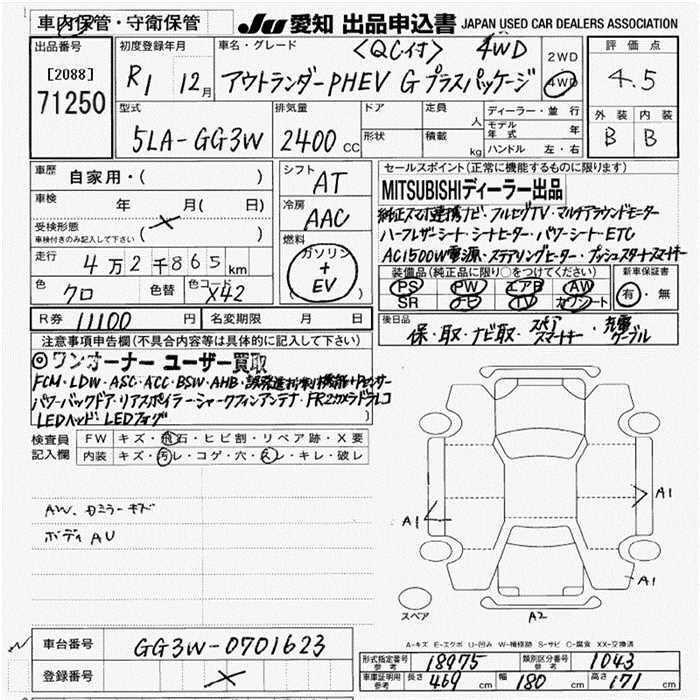 車内保管・守衛保管
JU 愛知 出品申込書 JAPAN USED CAR DEALERS ASSOCIATION
出品番号
[2088]
71250
初度登録年月
R1 12月
車名・グレード <QC付> 4WD
アウトランダーPHEV G プラスパッケージ
2WD
4WD
評価点
4.5
外装 内装
B B
型式
5LA-GG3W
排気量
2400 CC
ドア
形状
定員 人
積載 kg
ディーラー・並行
モデル年式 年
ハンドル 左・右
車歴
自家用・( )
車検 年 月( 日)
受検形態
車検付きのみ記入して下さい
( × )
走行
4万2千865km
色
クロ
色替
色コード
X42
シフト
AT
冷房
AAC
燃料
ガソリン
+
EV
( )
セールスポイント(正常に機能するものに限ります)
MITSUBISHIディーラー出品
純正スマホ連携ナビ・フルセグTV・マルチアラウンドモニター
ハーフレザーシート・シートヒーター・パワーシート・ETC
AC1500W電源・ステアリングヒーター・プッシュスタートスマーキー
装備品(純正品に限り○をつけてください)
PS PW エアB AW
SR ナビ TV カワシート
新車保証書
有・無
R券 11100 円
名変期限 月 日
後日品
保・取・ナビ取・スペアスマートキー・充電ケーブル
注意事項申告欄(不具合内容等は具体的に記入して下さい)
◎ワンオーナー ユーザー買取
FCM・LDW・ASC・ACC・BSW・AHB・誤発進抑制機能+Pセンサー
パワーバックドア・リアスポイラー・シャークフィンアンテナ・FR2カメラドラレコ
LEDヘッド・LEDフォグ )
検査員記入欄
FW キズ・飛石・ヒビ割・リペア跡・X要
内装 キズ・汚レ・コゲ・穴・スレ・キレ・破レ
AW、ドミラーキズ
ボディAU
A1
A1
A1
スペア
A2
A-キズ E-エクボ U-凹み W-補修跡 S-サビ C-腐食 XX-交換済
車台番号
GG3W-0701623
登録番号
×
形式指定番号
参考
18975
類別区分番号
参考
1043
車庫証明用
参考
長さ 469 cm
幅 180 cm
高さ 171 cm